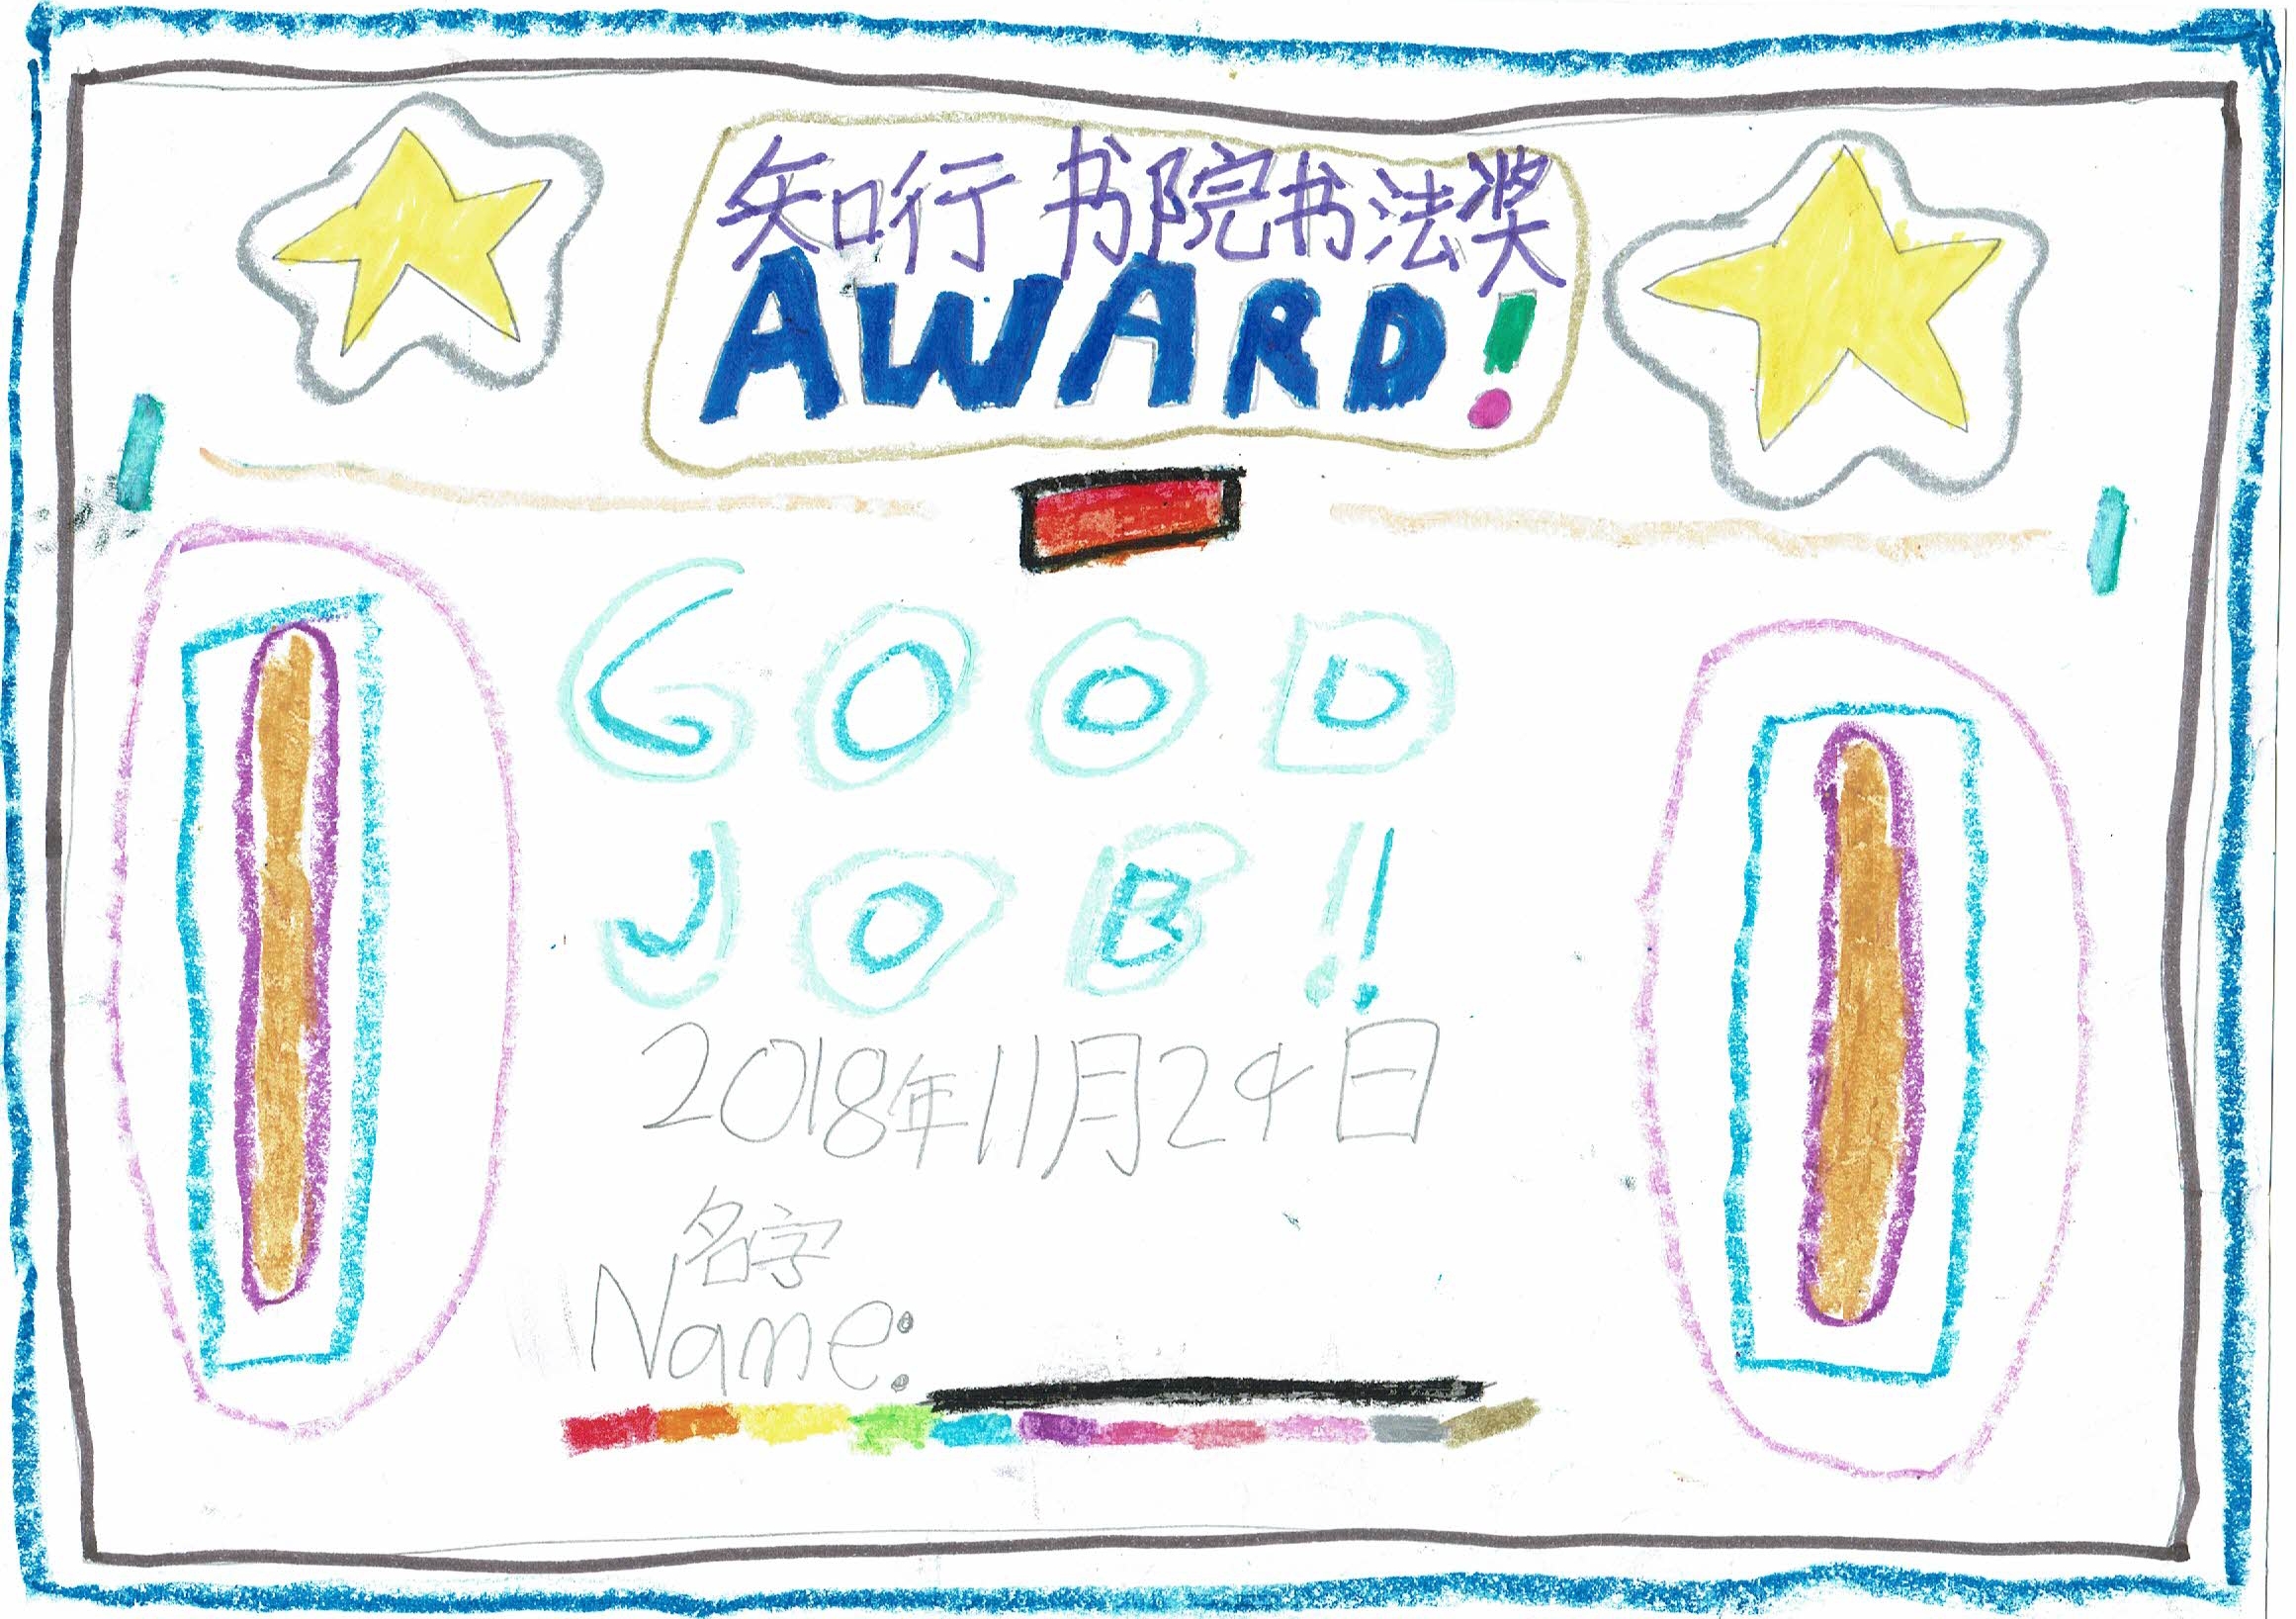 知行书院书法奖
AWARD!
GOOD
JOB!!
2018年11月24日
名字
Name: